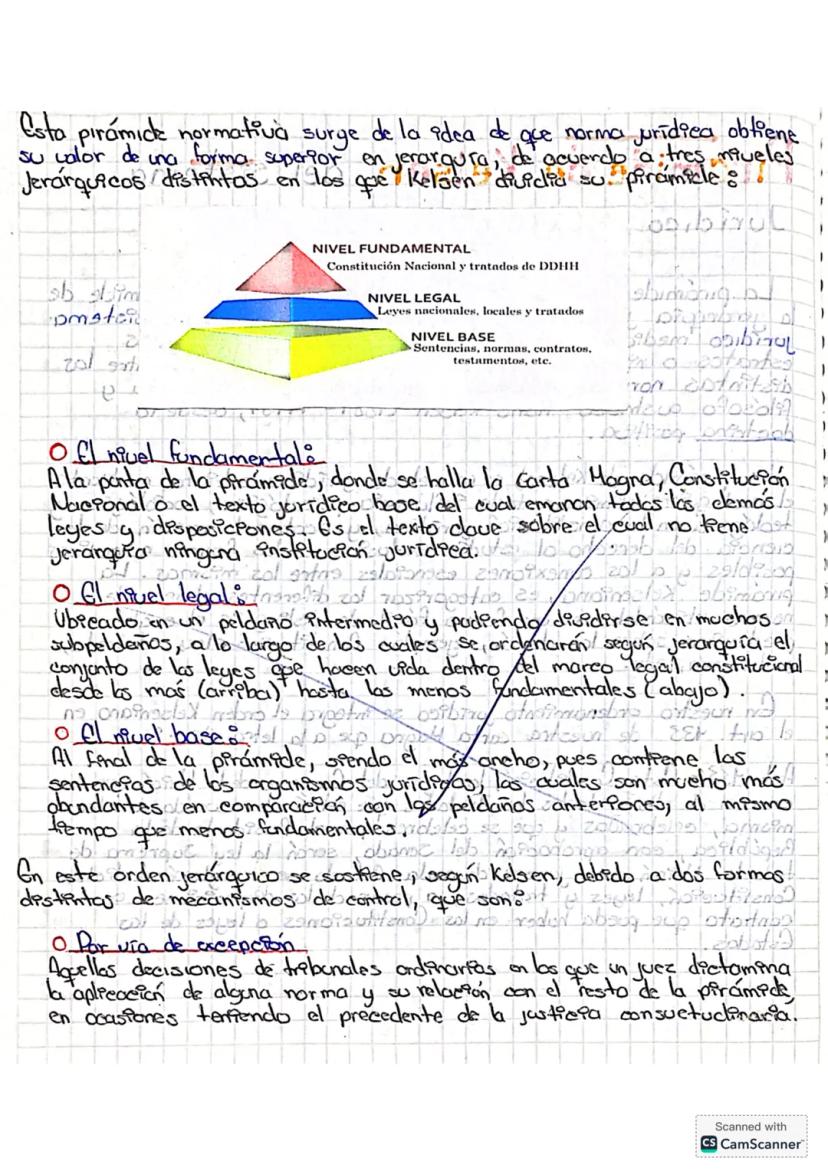 Esta pirámide normativa surge de la idea de que norma jurídica obtiene
su valor de una forma superior en jerarquía, de acuerdo a tres niveles
Jerárquicos distintos en los que Kelsen dividía su pirámide:
NIVEL FUNDAMENTAL
Constitución Nacional y tratados de DDHH
NIVEL LEGAL
Leyes nacionales, locales y tratados
NIVEL BASE
Sentencias, normas, contratos,
testamentos, etc.
El nivel fundamental:
A la punta de la pirámide, donde se halla la Carta Magna, Constitución
Nacional o el texto jurídico base del cual emanan todas las demás
leyes y disposiciones. Es el texto clave sobre el cual no tiene
jerarquía ninguna institución jurídica.
El nivel legal:
Ubicado en un peldaño intermedio y pudiendo dividirse en muchos
subpeldaños, a lo largo de los cuales se ordenarán según jerarquía el
conjunto de las leyes que hacen vida dentro del marco legal constitucional
desde las más (arriba) hasta las menos fundamentales (abajo).
El nivel base:
Al final de la pirámide, siendo el más ancho, pues contiene las
sentencias de los organismos jurídicos, las cuales son mucho más
abundantes en comparación con los peldaños anteriores, al mismo
tiempo que menos fundamentales.
En este orden jerárquico se sostiene, según Kelsen, debido a dos formas
distintas de mecanismos de control, que son:
Por vía de excepción
Aquellas decisiones de tribunales ordinarias en los que un juez dictamina
la aplicación de alguna norma y su relación con el resto de la pirámide,
en ocasiones teniendo el precedente de la justicia consuetudinaria.
Scanned with
CS CamScanner